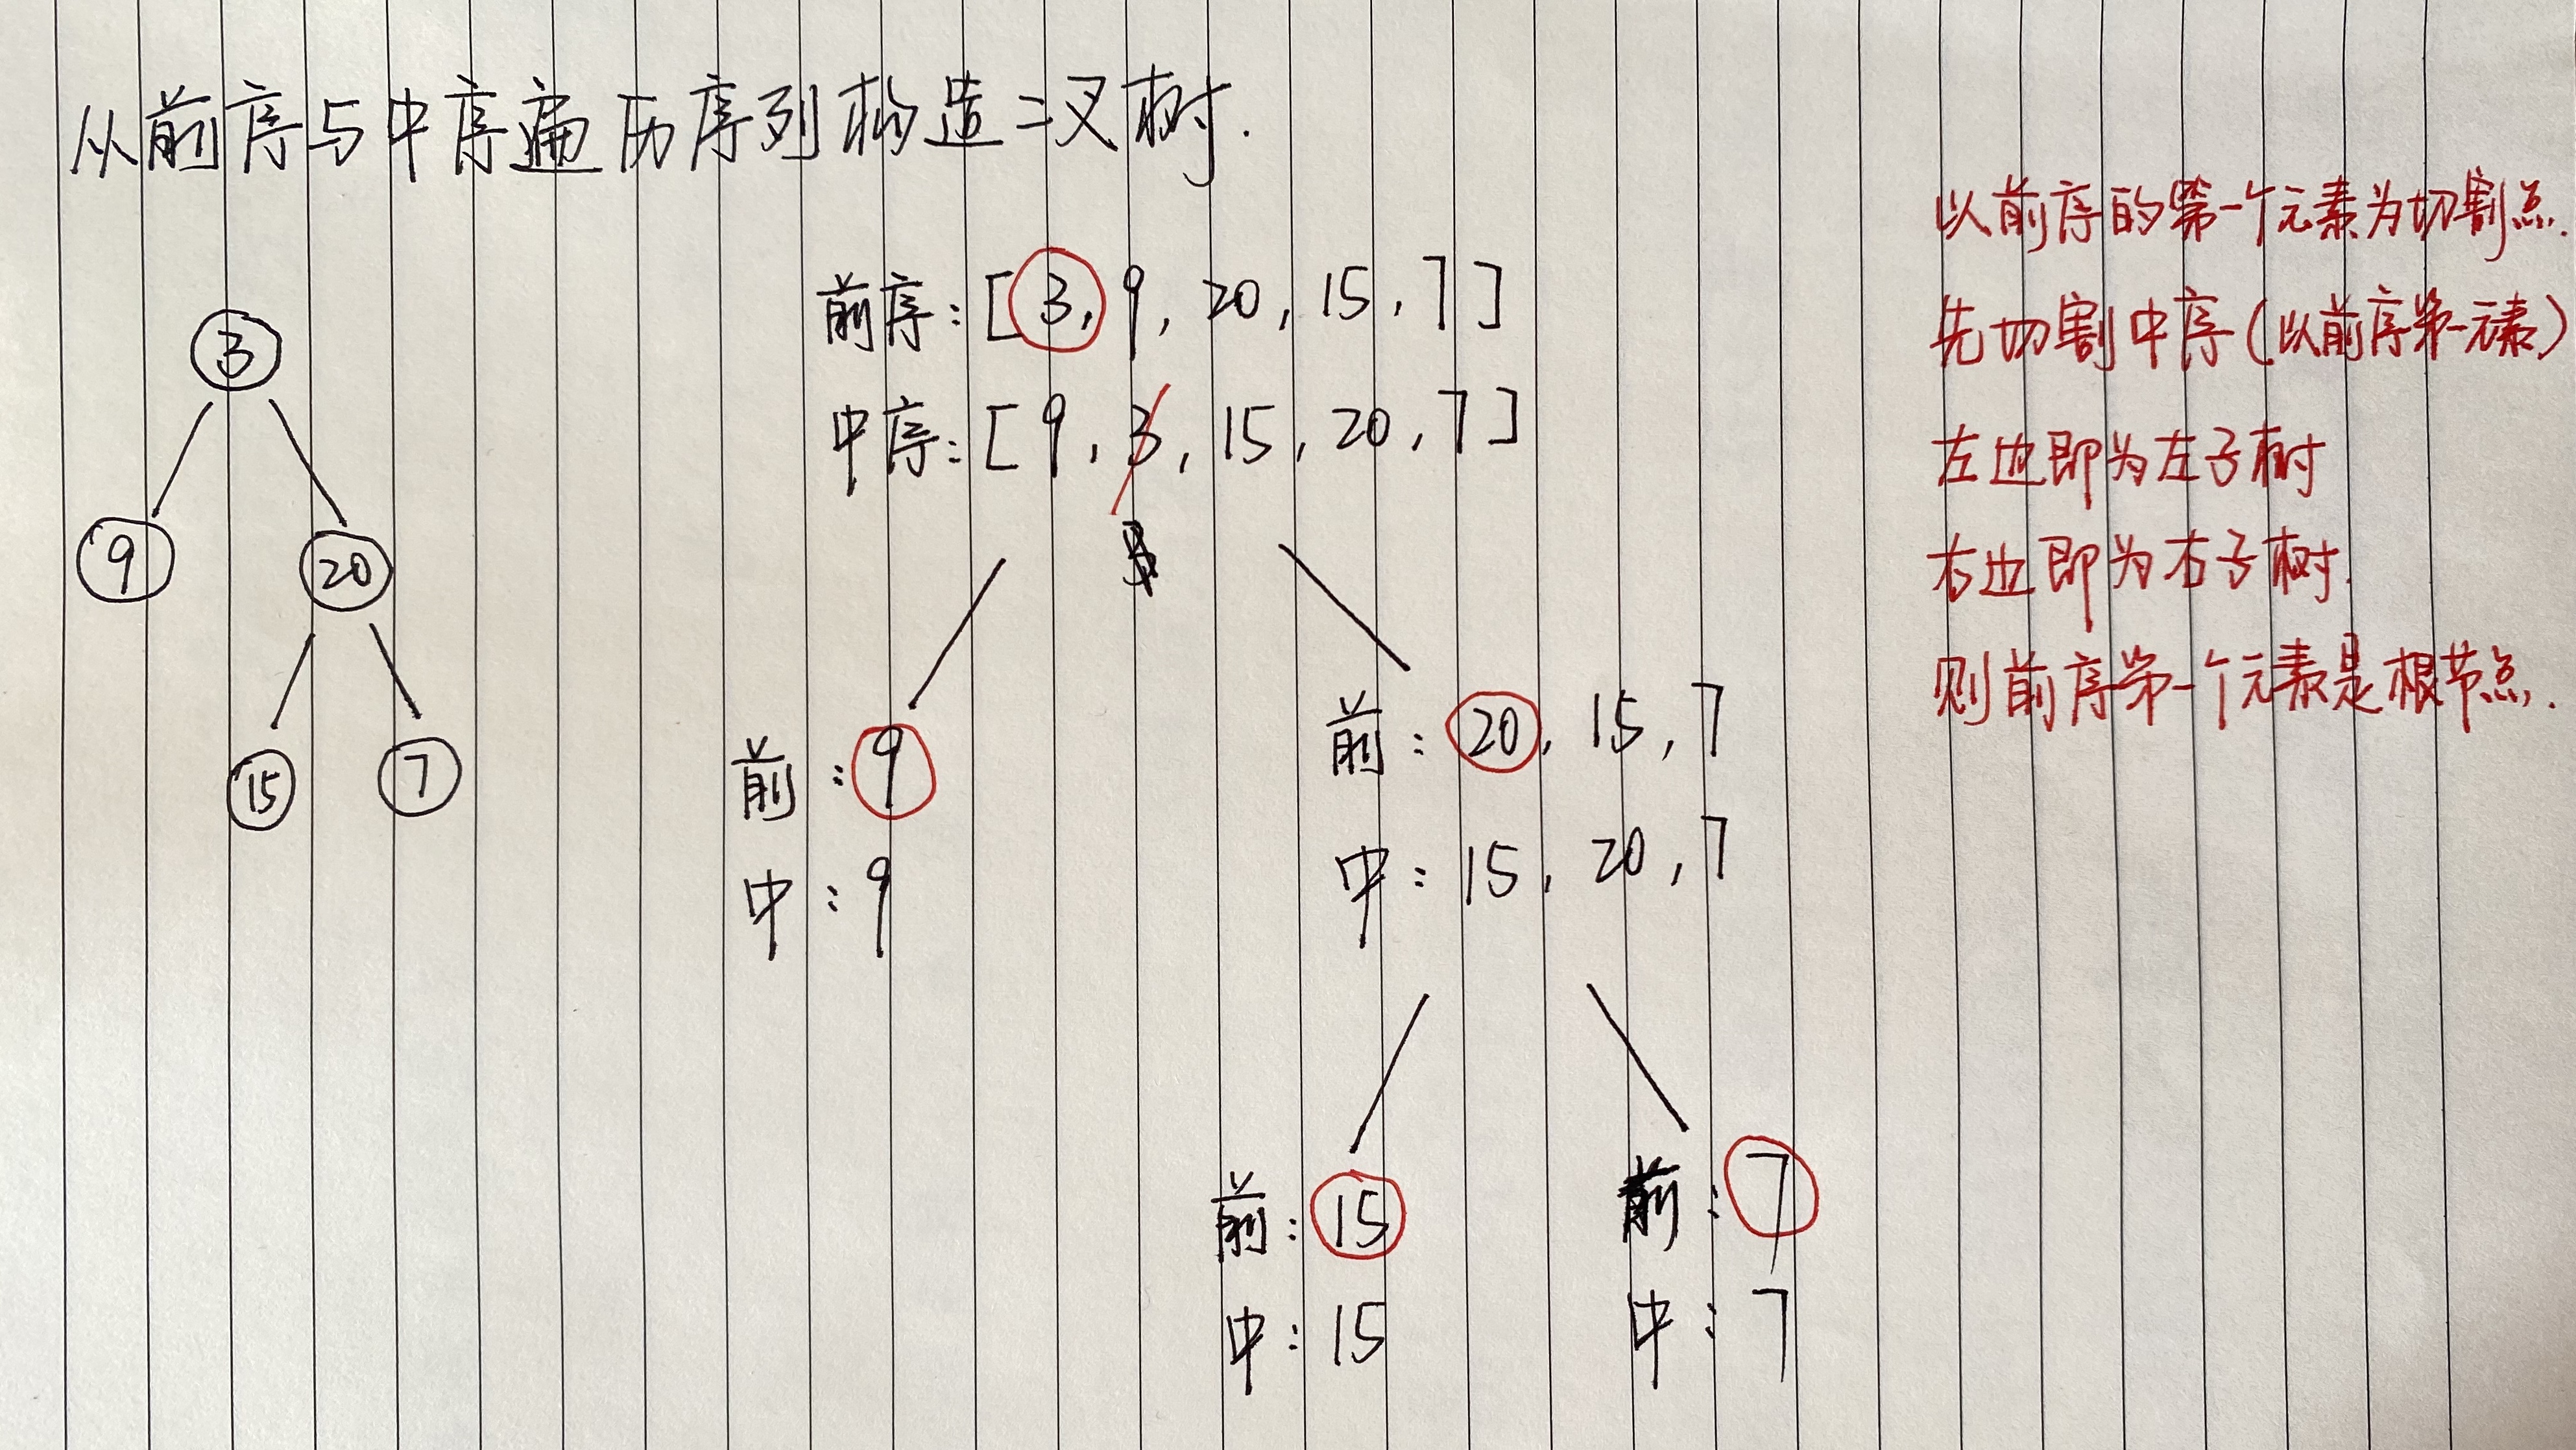 从前序与中序遍历序列构造二叉树.
前序:[3,9,20,15,7]
中序:[9,3,15,20,7]
3
9 20
15 7
前:9
中:9
前:20,15,7
中:15,20,7
前:15
中:15
前:7
中:7
以前序的第一个元素为切割点.
先切割中序(以前序第一元素)
左边即为左子树
右边即为右子树.
则前序第一个元素是根节点.